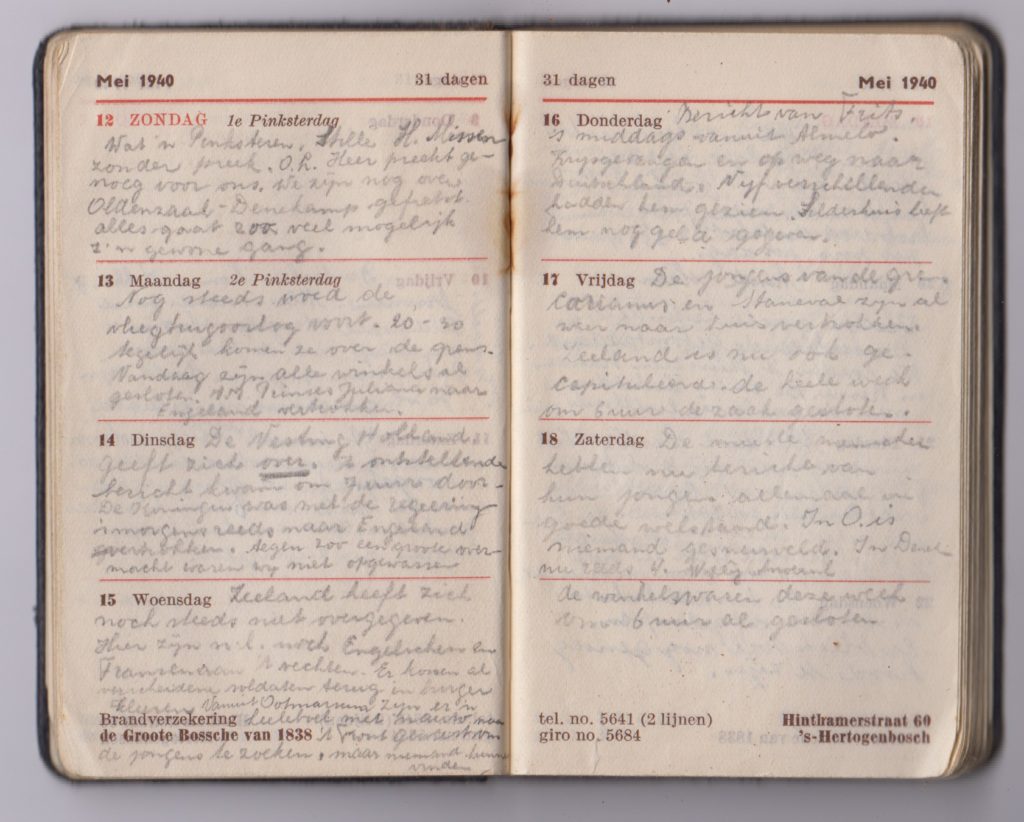 Mei 1940 31 dagen
12 ZONDAG 1e Pinksterdag
Wat 'n Pinksteren. Stille H. Missen
zonder preek. O.L. Heer preekt ge-
noeg voor ons. We zijn nog over
Oldenzaal-Denekamp gefietst
alles gaat zoo veel mogelijk
z'n gewone gang.
13 Maandag 2e Pinksterdag
Nog steeds woed de
vliegtuigoorlog voort. 20-30
tegelijk komen ze over de grens.
Vandaag zijn alle winkels al
gesloten. Prinses Juliana naar
Engeland vertrokken.
14 Dinsdag De Vesting Holland
geeft zich over. 't ontstellende
bericht kwam om 7 uur door.
De Koningin was met de regeering
's morgens reeds naar Engeland
vertrokken. tegen zoo een groote over-
macht waren wy niet opgewassen
15 Woensdag Zeeland heeft zich
noch steeds niet overgegeven.
Hier zijn n.l. noch Engelschen en
Franschen aan 't vechten. Er komen al
verscheidene soldaten terug in burger
kleeren. Vanuit Ootmarsum zijn er 'n
met 'n auto naar
't Front geweest om
de jongens te zoeken, maar niemand kunnen
vinden
Brandverzekering
de Groote Bossche van 1838
31 dagen Mei 1940
16 Donderdag Bericht van Frits.
's middags vanuit Almelo.
Krijgsgevangen en op weg naar
Duitschland. Vijf verschillenden
hadden hem gezien. heeft
hem nog geld gegeven.
17 Vrijdag De jongens van de
en zijn al
weer naar huis vertrokken.
Zeeland is nu ook ge-
capituleerd. de heele week
om 6 uur de zaak gesloten.
18 Zaterdag De meeste menschen
hebben nu bericht van
hun jongens allemaal in
goede welstand. In O. is
niemand gesneuveld. In Dene-
nu reeds 4.
de winkels waren deze week
om 6 uur al gesloten
tel. no. 5641 (2 lijnen) Hinthamerstraat 60
giro no. 5684 's-Hertogenbosch